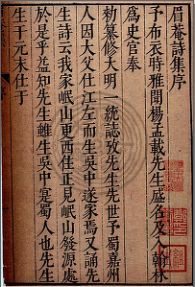 眉菴詩集序
予布衣時雅聞楊孟載先生盛名及入翰林
為史官奉
勑纂修大明一統誌攷先生先世乃蜀嘉州
人因大父仕江左而生吳中遂家焉又誦先
生詩云我家岷山更西住正見岷山發源處
於是乎迺知先生雖生吳中寔蜀人也先生
生于元末仕于